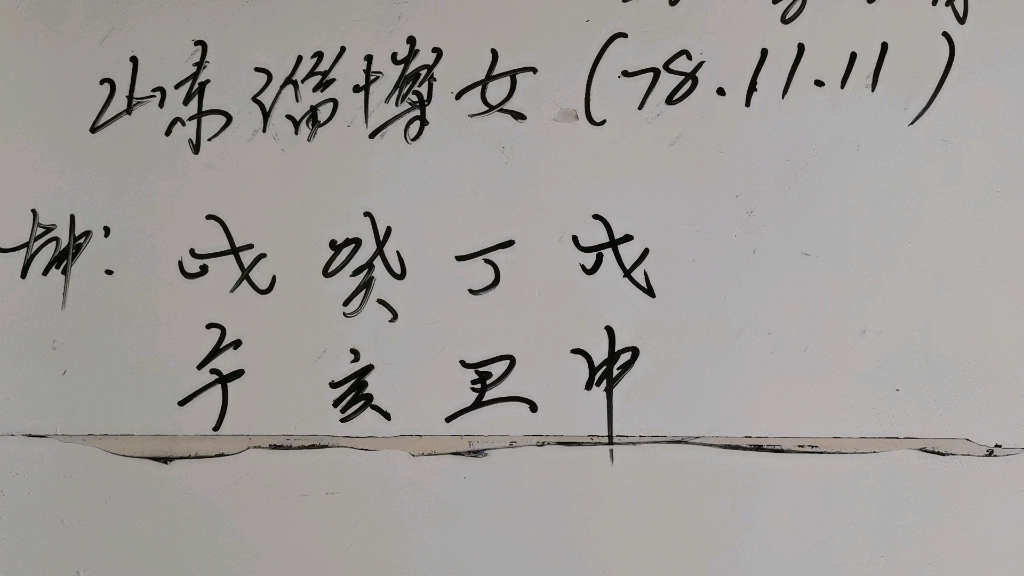 山东淄博女(78.11.11)
坤: 戊 癸 丁 戊
午 亥 丑 申